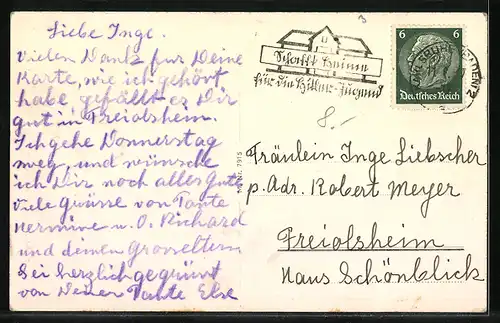 Liebe Inge.
Vielen Dank für Deine
Karte, wie ich gehört
habe, gefällt es Dir
gut in Freiolsheim.
Ich gehe Donnerstag
weg, und wünsche
ich Dir noch alles Gute
Viele Grüsse von Tante
Hermine u. O. Richard
und deinen Grosseltern
Sei herzlich gegrüsst
von Deiner Tante Else
3
Schafft Heime
für die Hitler-Jugend
6 6
Deutsches Reich
8.-
Nr. 7915
Fräulein Inge Liebscher
p. Adr. Robert Meyer
Freiolsheim
Haus Schönblick